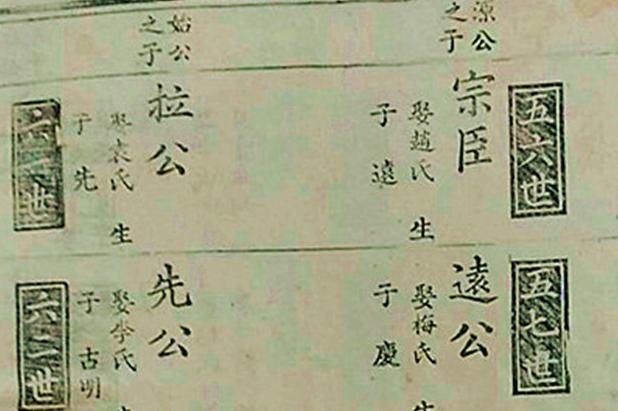 源公
之子
始公
之子
五六世
宗臣
娶趙氏 生
子 遠
拉公
娶袁氏 生
子 先
六一世
五七世
遠公
娶梅氏 生
子 慶
先公
娶李氏
子 古明
六二世